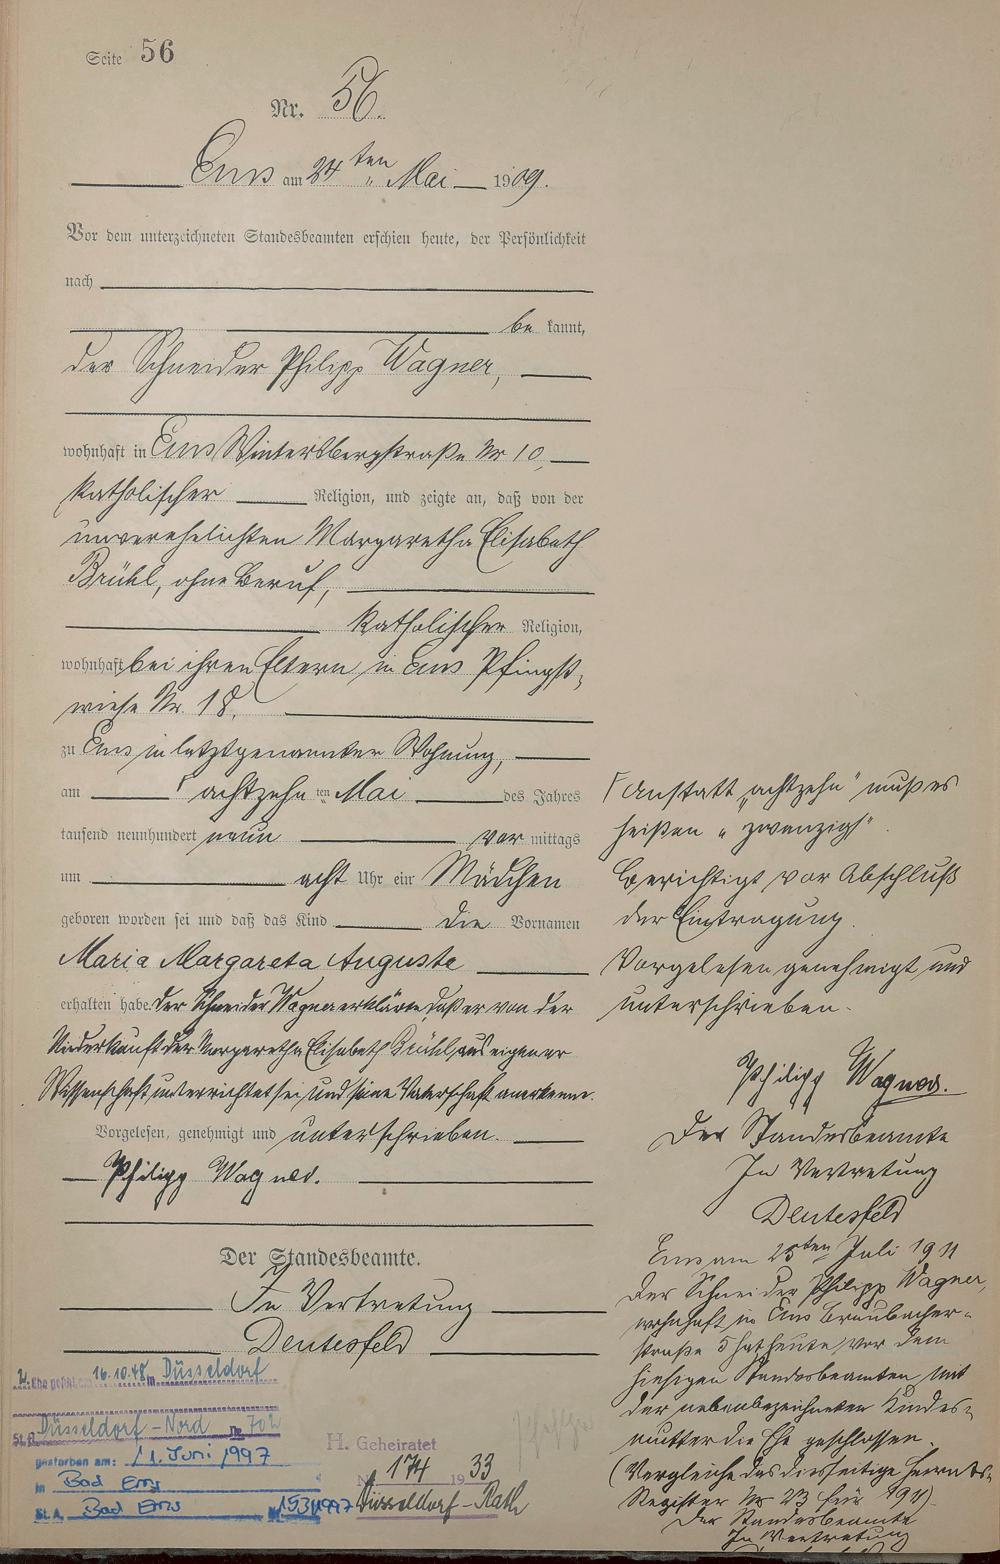 Seite 56
Nr. 56.
Ems am 24ten Mai 1909.
Vor dem unterzeichneten Standesbeamten erschien heute, der Persönlichkeit
nach
be kannt,
der Schneider Philipp Wagner,
wohnhaft in Ems Wintersbergstraße Nr 10,
katholischer Religion, und zeigte an, daß von der
unverehelichten Margaretha Elisabeth
Brühl, ohne Beruf,
katholischer Religion,
wohnhaft bei ihren Eltern in Ems Pfingst-
wiese Nr. 18,
zu Ems in letztgenannter Wohnung,
am achtzehn ten Mai des Jahres
tausend neunhundert neun vor mittags
um acht Uhr ein Mädchen
geboren worden sei und daß das Kind die Vornamen
Maria Margareta Auguste
erhalten habe. Der Schneider Wagner erklärte, daß er von der
Niederkunft der Margaretha Elisabeth Brühl, aus eigener
Wissenschaft unterrichtet sei, und seine Vaterschaft anerkenne.
Vorgelesen, genehmigt und unterschrieben.
Philipp Wagner.
Der Standesbeamte.
In Vertretung
Deutesfeld
Anstatt "achtzehn" muß es
heißen "zwanzigst"
Berichtigt vor Abschluß
der Eintragung.
Vorgelesen genehmigt und
unterschrieben.
Philipp Wagner.
Der Standesbeamte
In Vertretung
Deutesfeld
Ems am 25ten Juli 1911
Der Schneider Philipp Wagner,
wohnhaft in Ems Braubacher-
straße 5 hat heute vor dem
hiesigen Standesbeamten mit
der nebenbezeichneten Kindes-
mutter die Ehe geschlossen.
(Vergleiche das diesseitige Heirats-
Register Nr 23 für 1911).
Der Standesbeamte
In Vertretung
2. Ehe geschl. am 16.10.48 in Düsseldorf
St.A. Düsseldorf-Nord Nr. 702
gestorben am: 11. Juni 1997
in Bad Ems
St. A. Bad Ems Nr. 153/1997
H. Geheiratet
Nr. 174 1933
Düsseldorf-Rath